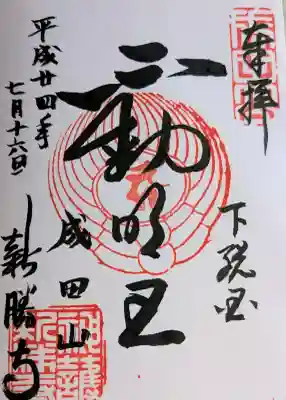 奉拝
下総国
不動明王
平成廿四年
七月十六日
成田山
新勝寺